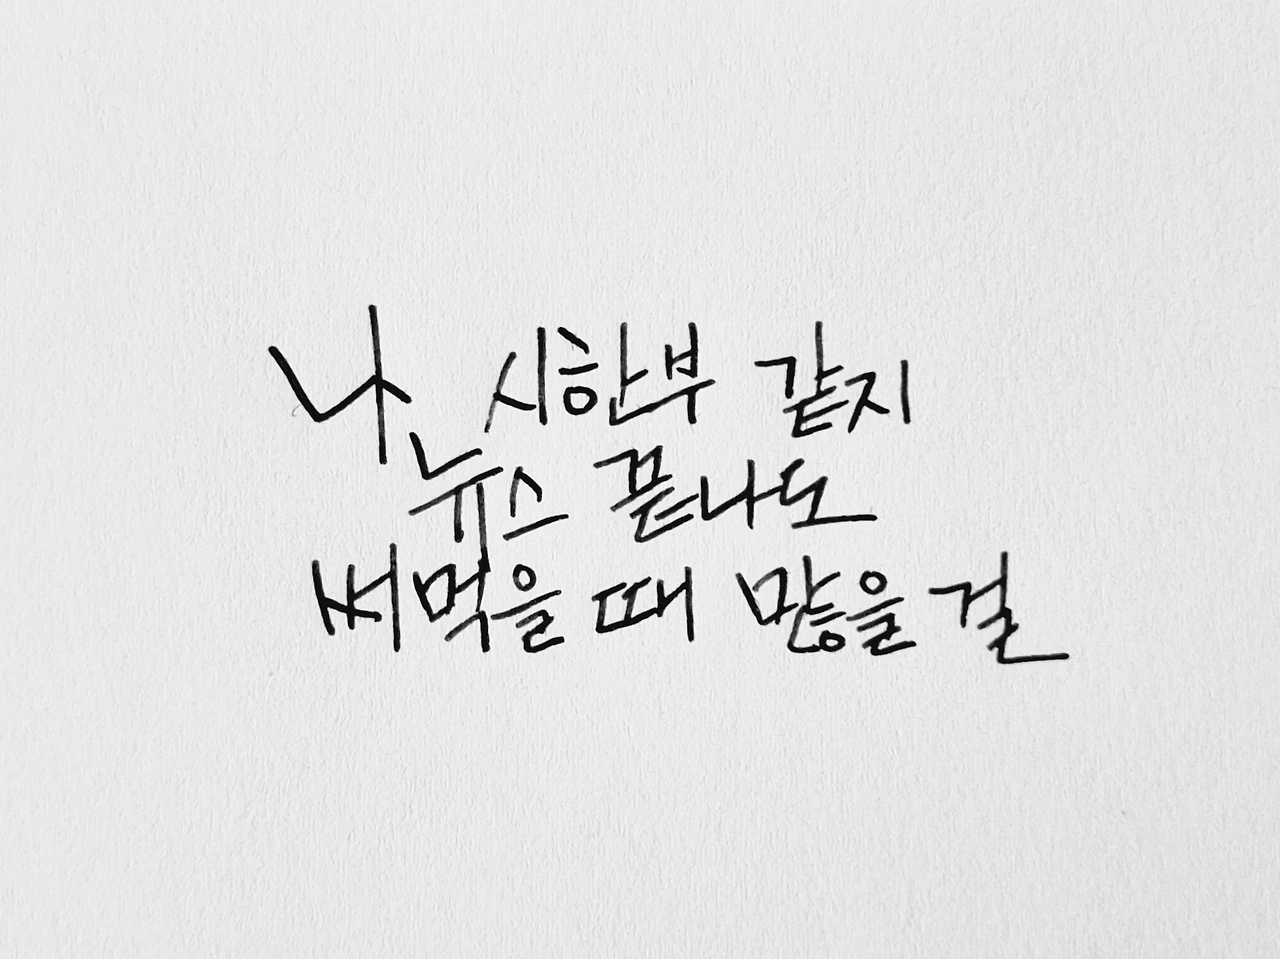 나 시한부 같지
뉴스 끝나도
써먹을 때 많을 걸